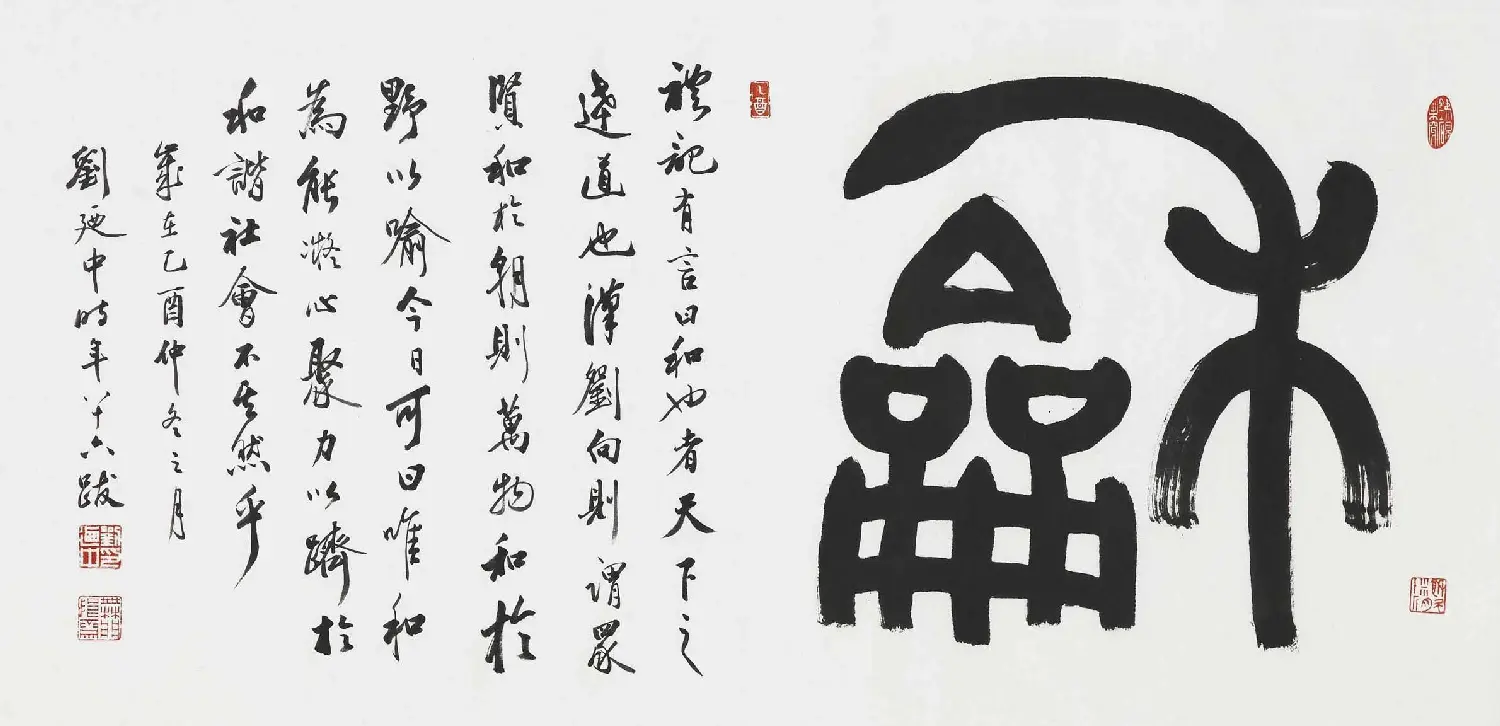 龢
禮記有言曰和也者天下之
達道也漢劉向則謂眾
賢和於朝則萬物和於
野以喻今日可曰唯和
為能凝心聚力以躋於
和諧社會不其然乎
歲在乙酉仲冬之月
劉廼中時年八十六跋